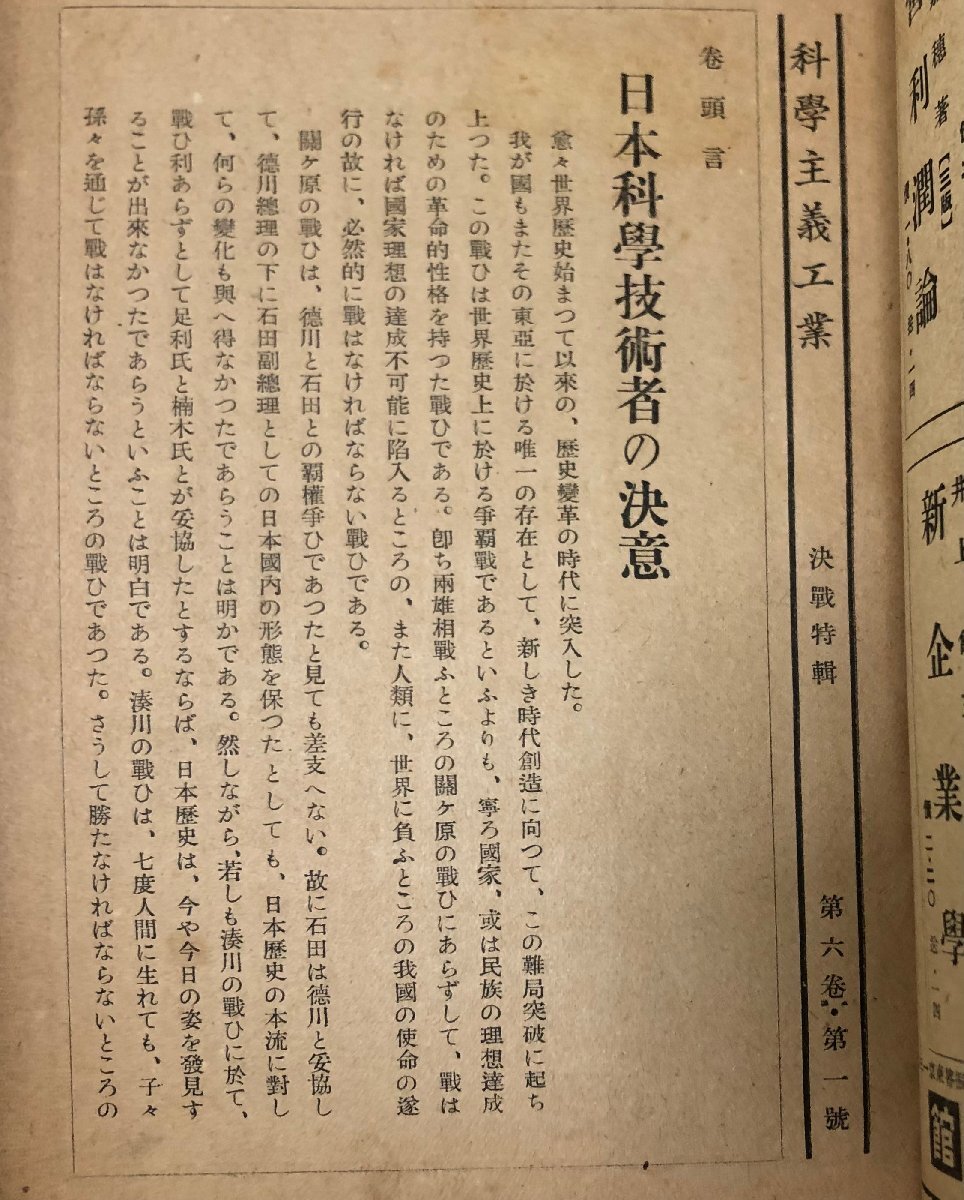 利潤論
新企業學
館
科學主義工業 決戰特輯 第六卷・第一號
卷頭言
日本科學技術者の決意
愈々世界歷史始まつて以來の、歷史變革の時代に突入した。
我が國もまたその東亞に於ける唯一の存在として、新しき時代創造に向つて、この難局突破に起ち
上つた。この戰ひは世界歷史上に於ける爭覇戰であるといふよりも、寧ろ國家、或は民族の理想達成
のための革命的性格を持つた戰ひである。卽ち兩雄相戰ふところの關ケ原の戰ひにあらずして、戰は
なければ國家理想の達成不可能に陷入るところの、また人類に、世界に負ふところの我國の使命の遂
行の故に、必然的に戰はなければならない戰ひである。
關ケ原の戰ひは、德川と石田との覇權爭ひであつたと見ても差支へない。故に石田は德川と妥協し
て、德川總理の下に石田副總理としての日本國內の形態を保つたとしても、日本歷史の本流に對し
て、何らの變化も與へ得なかつたであらうことは明かである。然しながら、若しも湊川の戰ひに於て、
戰ひ利あらずとして足利氏と楠木氏とが妥協したとするならば、日本歷史は、今や今日の姿を發見す
ることが出來なかつたであらうといふことは明白である。湊川の戰ひは、七度人間に生れても、子々
孫々を通じて戰はなければならないところの戰ひであつた。さうして勝たなければならないところの